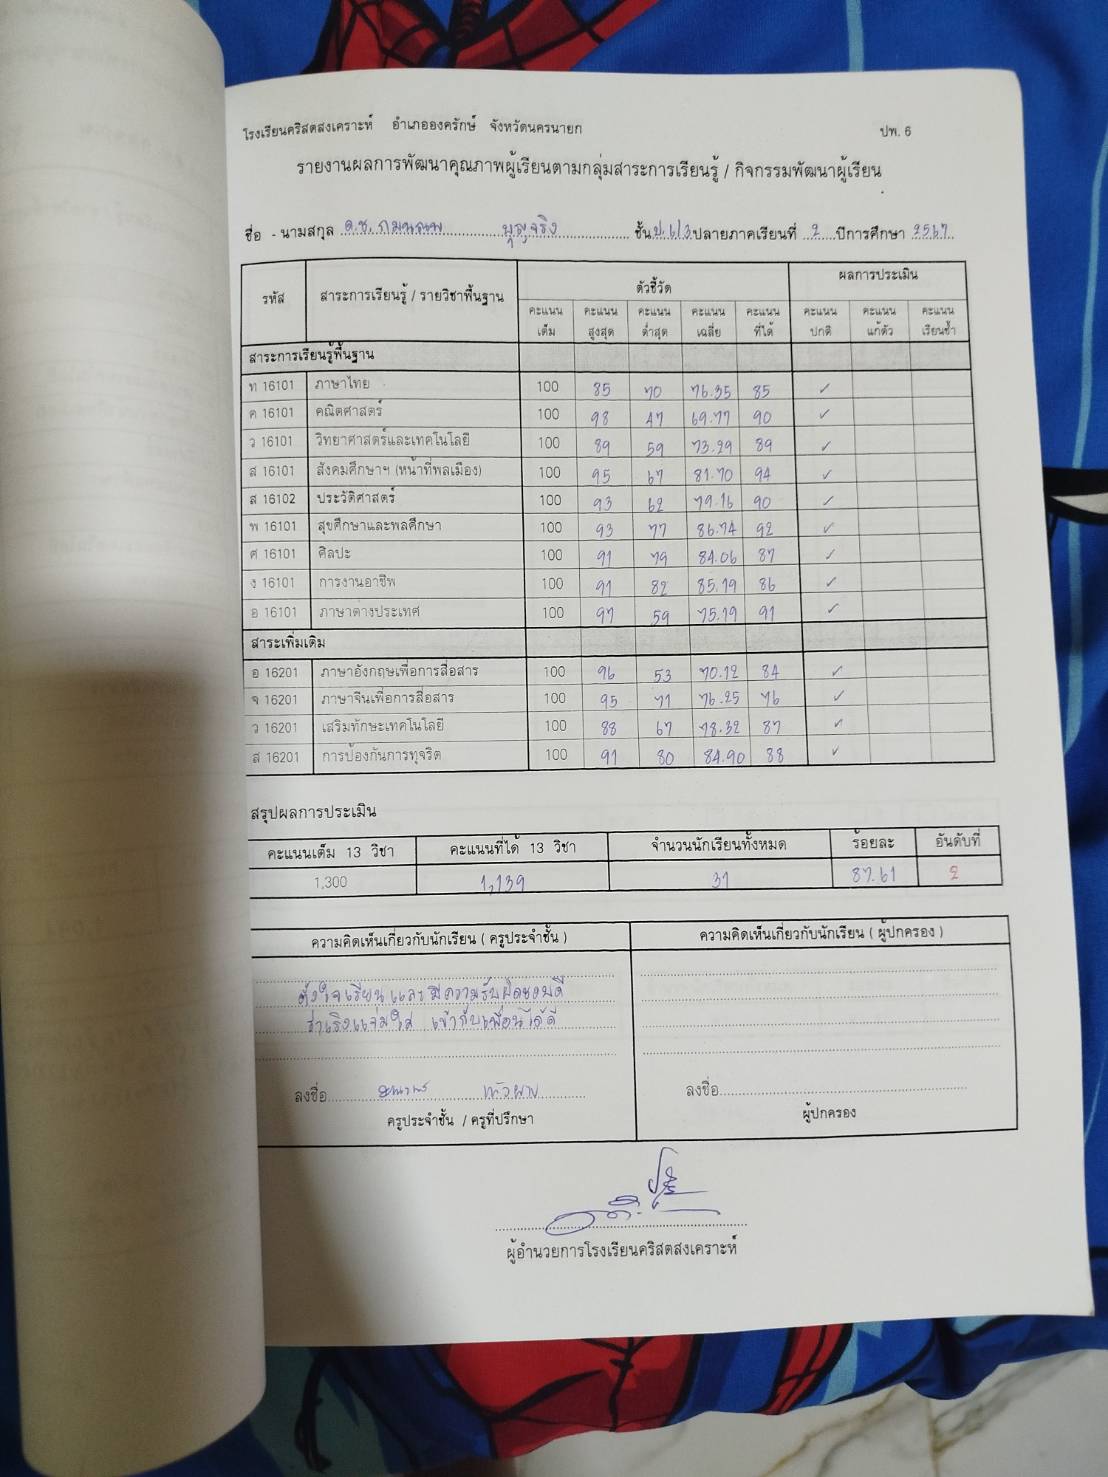 โรงเรียนคริสตสงเคราะห์ อำเภอองครักษ์ จังหวัดนครนายก ปพ. 6
รายงานผลการพัฒนาคุณภาพผู้เรียนตามกลุ่มสาระการเรียนรู้ / กิจกรรมพัฒนาผู้เรียน
ชื่อ - นามสกุล ด.ช. บุญจริง ชั้น ป.6/3 ปลายภาคเรียนที่ 2 ปีการศึกษา 2567
รหัส สาระการเรียนรู้ / รายวิชาพื้นฐาน ตัวชี้วัด ผลการประเมิน
คะแนนเต็ม คะแนนสูงสุด คะแนนต่ำสุด คะแนนเฉลี่ย คะแนนที่ได้ คะแนนปกติ คะแนนแก้ตัว คะแนนเรียนซ้ำ
สาระการเรียนรู้พื้นฐาน
ท 16101 ภาษาไทย 100 85 70 76.35 85 ✓
ค 16101 คณิตศาสตร์ 100 98 47 69.77 90 ✓
ว 16101 วิทยาศาสตร์และเทคโนโลยี 100 89 59 73.29 89 ✓
ส 16101 สังคมศึกษาฯ (หน้าที่พลเมือง) 100 95 67 81.70 94 ✓
ส 16102 ประวัติศาสตร์ 100 93 62 79.16 90 ✓
พ 16101 สุขศึกษาและพลศึกษา 100 93 77 86.74 92 ✓
ศ 16101 ศิลปะ 100 91 79 84.06 87 ✓
ง 16101 การงานอาชีพ 100 91 82 85.19 86 ✓
อ 16101 ภาษาต่างประเทศ 100 97 59 75.19 91 ✓
สาระเพิ่มเติม
อ 16201 ภาษาอังกฤษเพื่อการสื่อสาร 100 96 53 70.12 84 ✓
จ 16201 ภาษาจีนเพื่อการสื่อสาร 100 95 71 76.25 76 ✓
ว 16201 เสริมทักษะเทคโนโลยี 100 88 67 78.32 87 ✓
ส 16201 การป้องกันการทุจริต 100 91 80 84.90 88 ✓
สรุปผลการประเมิน
คะแนนเต็ม 13 วิชา คะแนนที่ได้ 13 วิชา จำนวนนักเรียนทั้งหมด ร้อยละ อันดับที่
1,300 1,139 31 87.61 2
ความคิดเห็นเกี่ยวกับนักเรียน ( ครูประจำชั้น ) ความคิดเห็นเกี่ยวกับนักเรียน ( ผู้ปกครอง )
ตั้งใจเรียนและมีความรับผิดชอบดี
ร่าเริงแจ่มใส เข้ากับเพื่อนได้ดี
ลงชื่อ ลงชื่อ
ครูประจำชั้น / ครูที่ปรึกษา ผู้ปกครอง
ผู้อำนวยการโรงเรียนคริสตสงเคราะห์